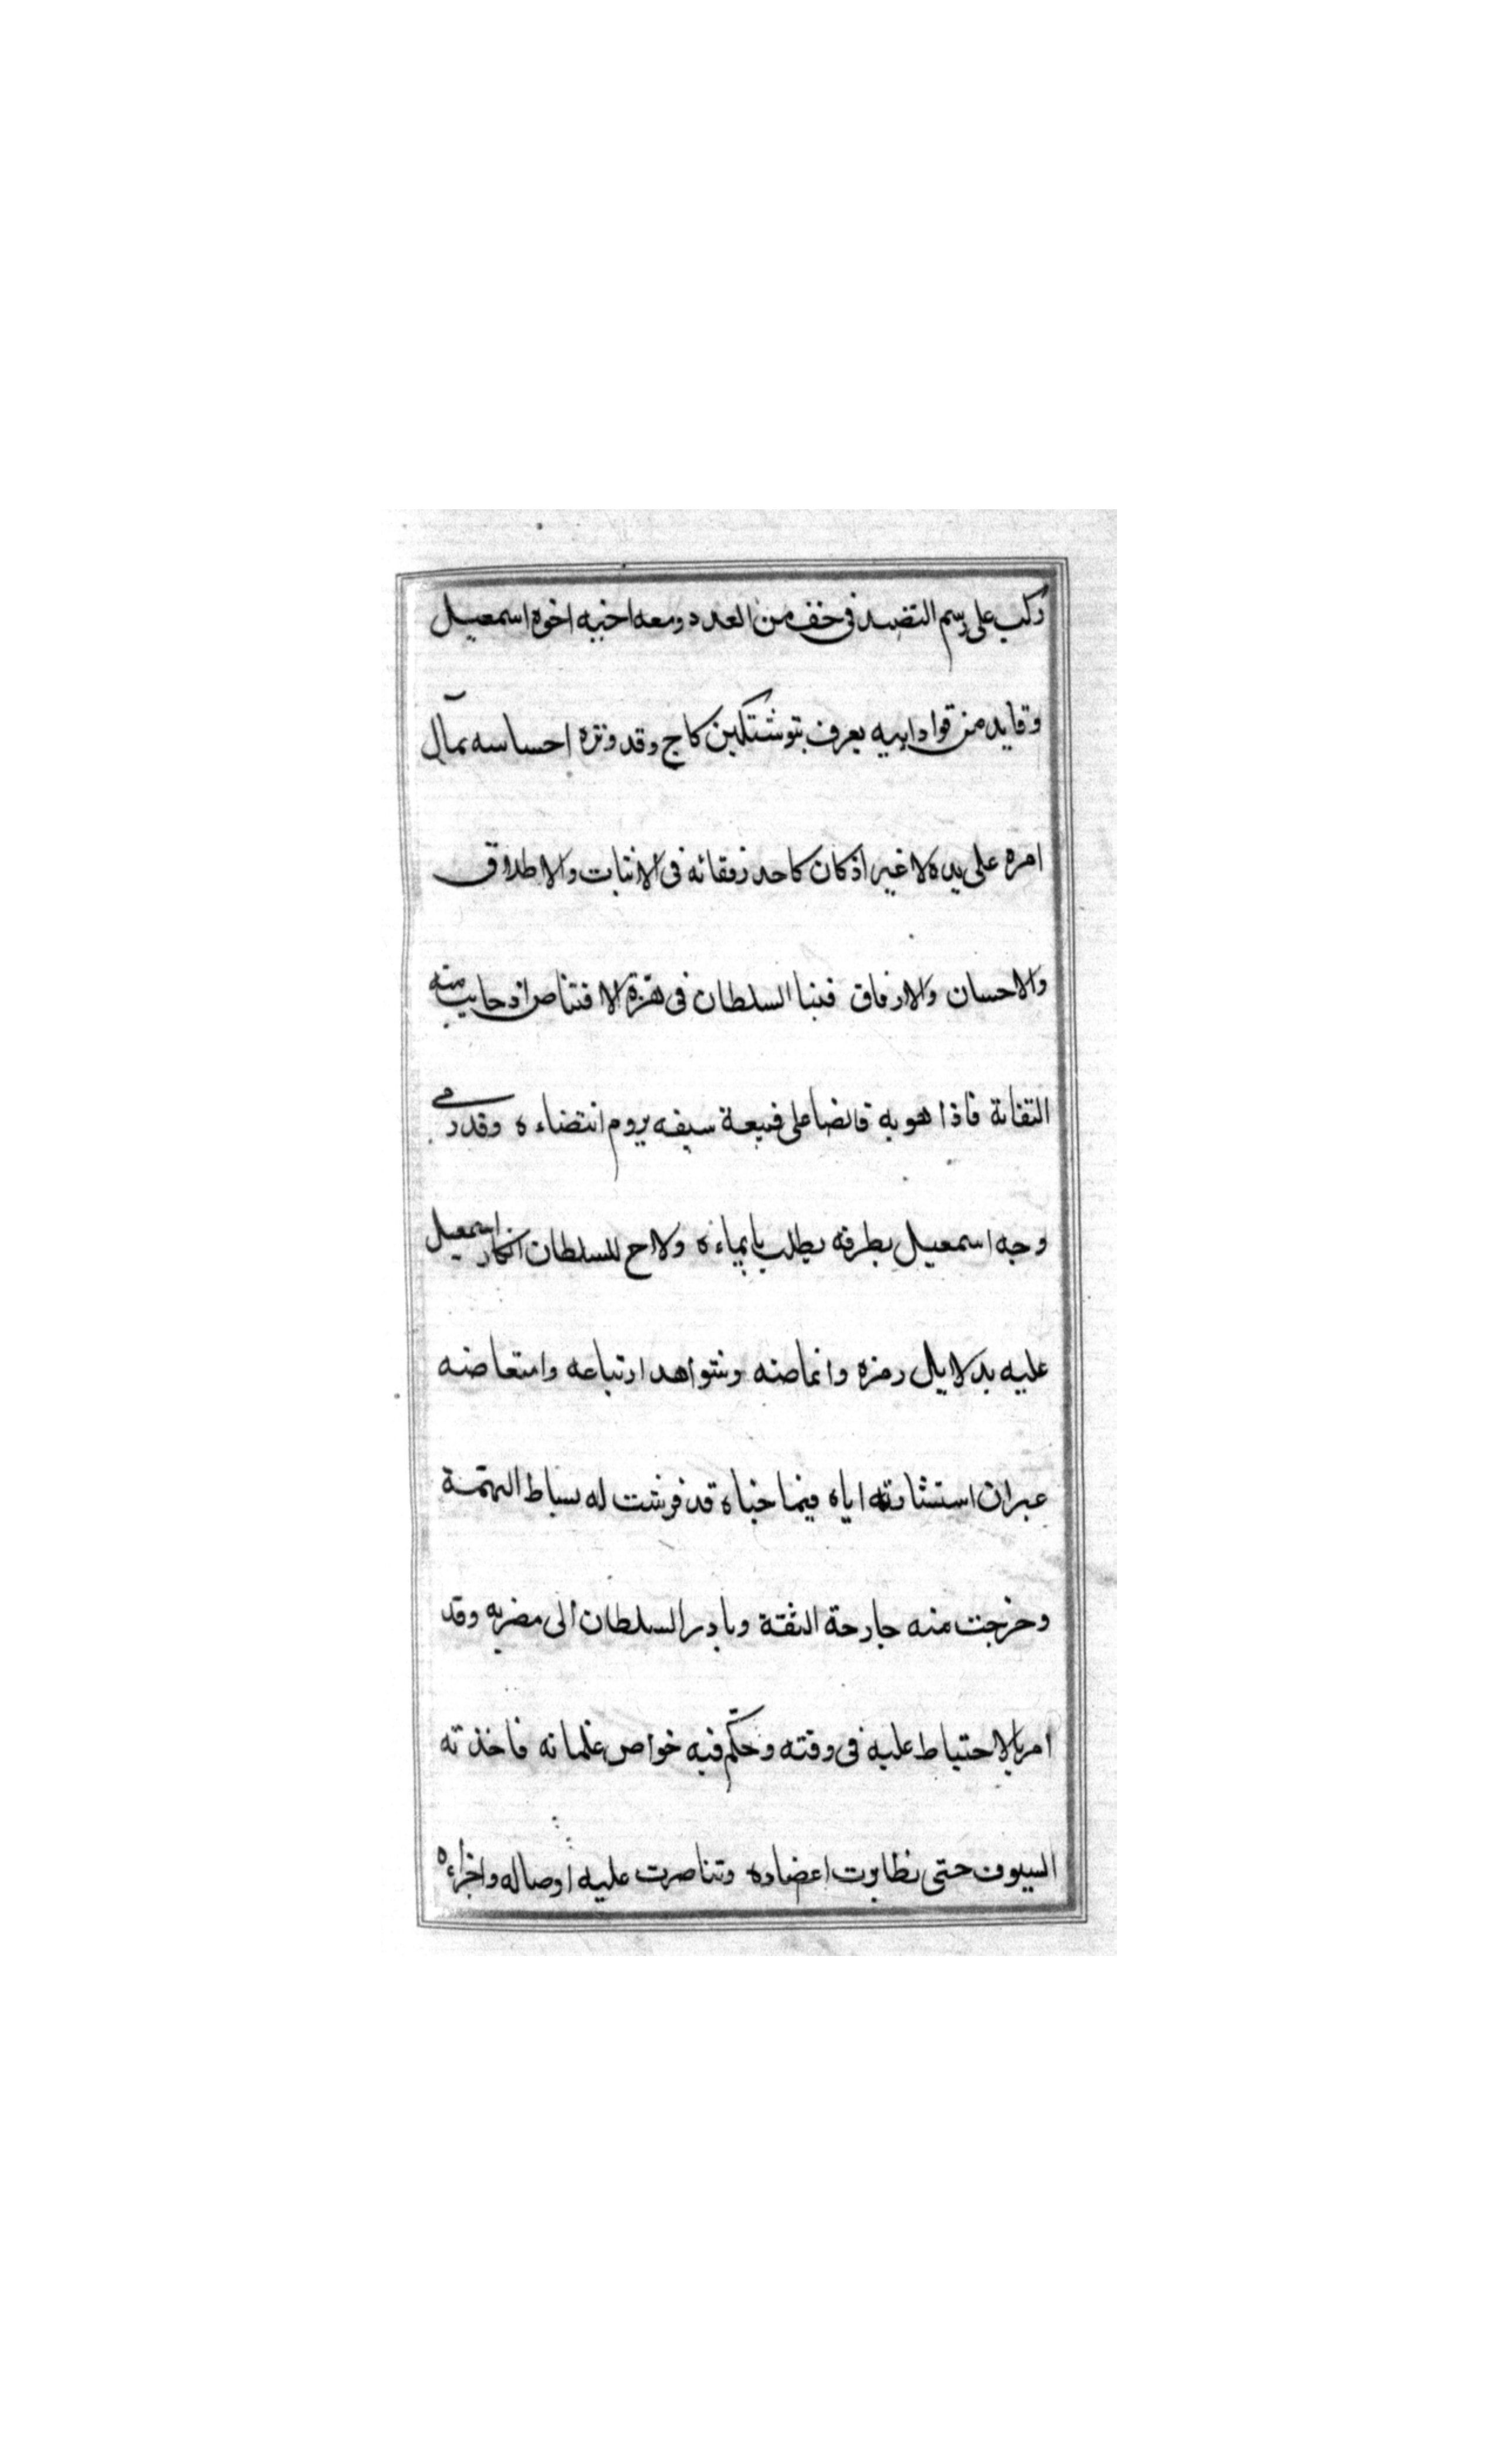 ركب على رسم التصيد فى خف من العدد ومعه اخيه اخوه اسمعيل
وقايد من قواد ابيه يعرف بنوشتكين كاج وقد وتره احساسه بمآل
امره على يده لا غير اذ كان كاحد رفقائه فى الاثبات والاطلاق
والاحسان والارفاق فبنا السلطان فى هزة الاقتناص اذ حانت منه
التفاتة فاذا هو به قابضا على قبيعة سيفه يروم انتضاءه وقد رمى
وجه اسمعيل بطرفه يطلب بايماءه ولاح للسلطان انكار اسمعيل
عليه بدلايل رمزه وانماضه وشواهد ارتياعه وامتعاضه
غيران استشارته اياه فيما خباه قد فرشت له بساط التهمة
وخرجت منه جارحة الثقة وبادر السلطان الى مضربه وقد
امر بالاحتياط عليه فى وقته وحكّم فيه خواص غلمانه فاخذته
السيوف حتى تطايرت اعضاده وتناصرت عليه اوصاله واجزاءه